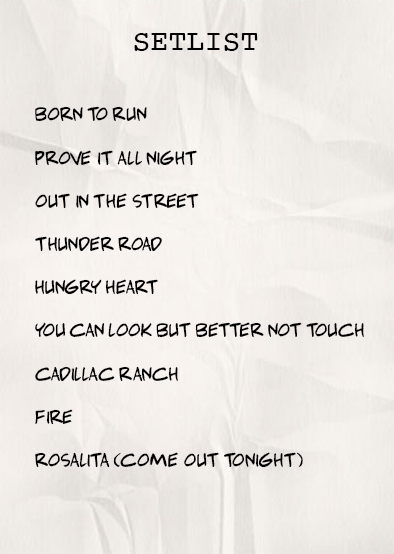 SETLIST
BORN TO RUN
PROVE IT ALL NIGHT
OUT IN THE STREET
THUNDER ROAD
HUNGRY HEART
YOU CAN LOOK BUT BETTER NOT TOUCH
CADILLAC RANCH
FIRE
ROSALITA (COME OUT TONIGHT)